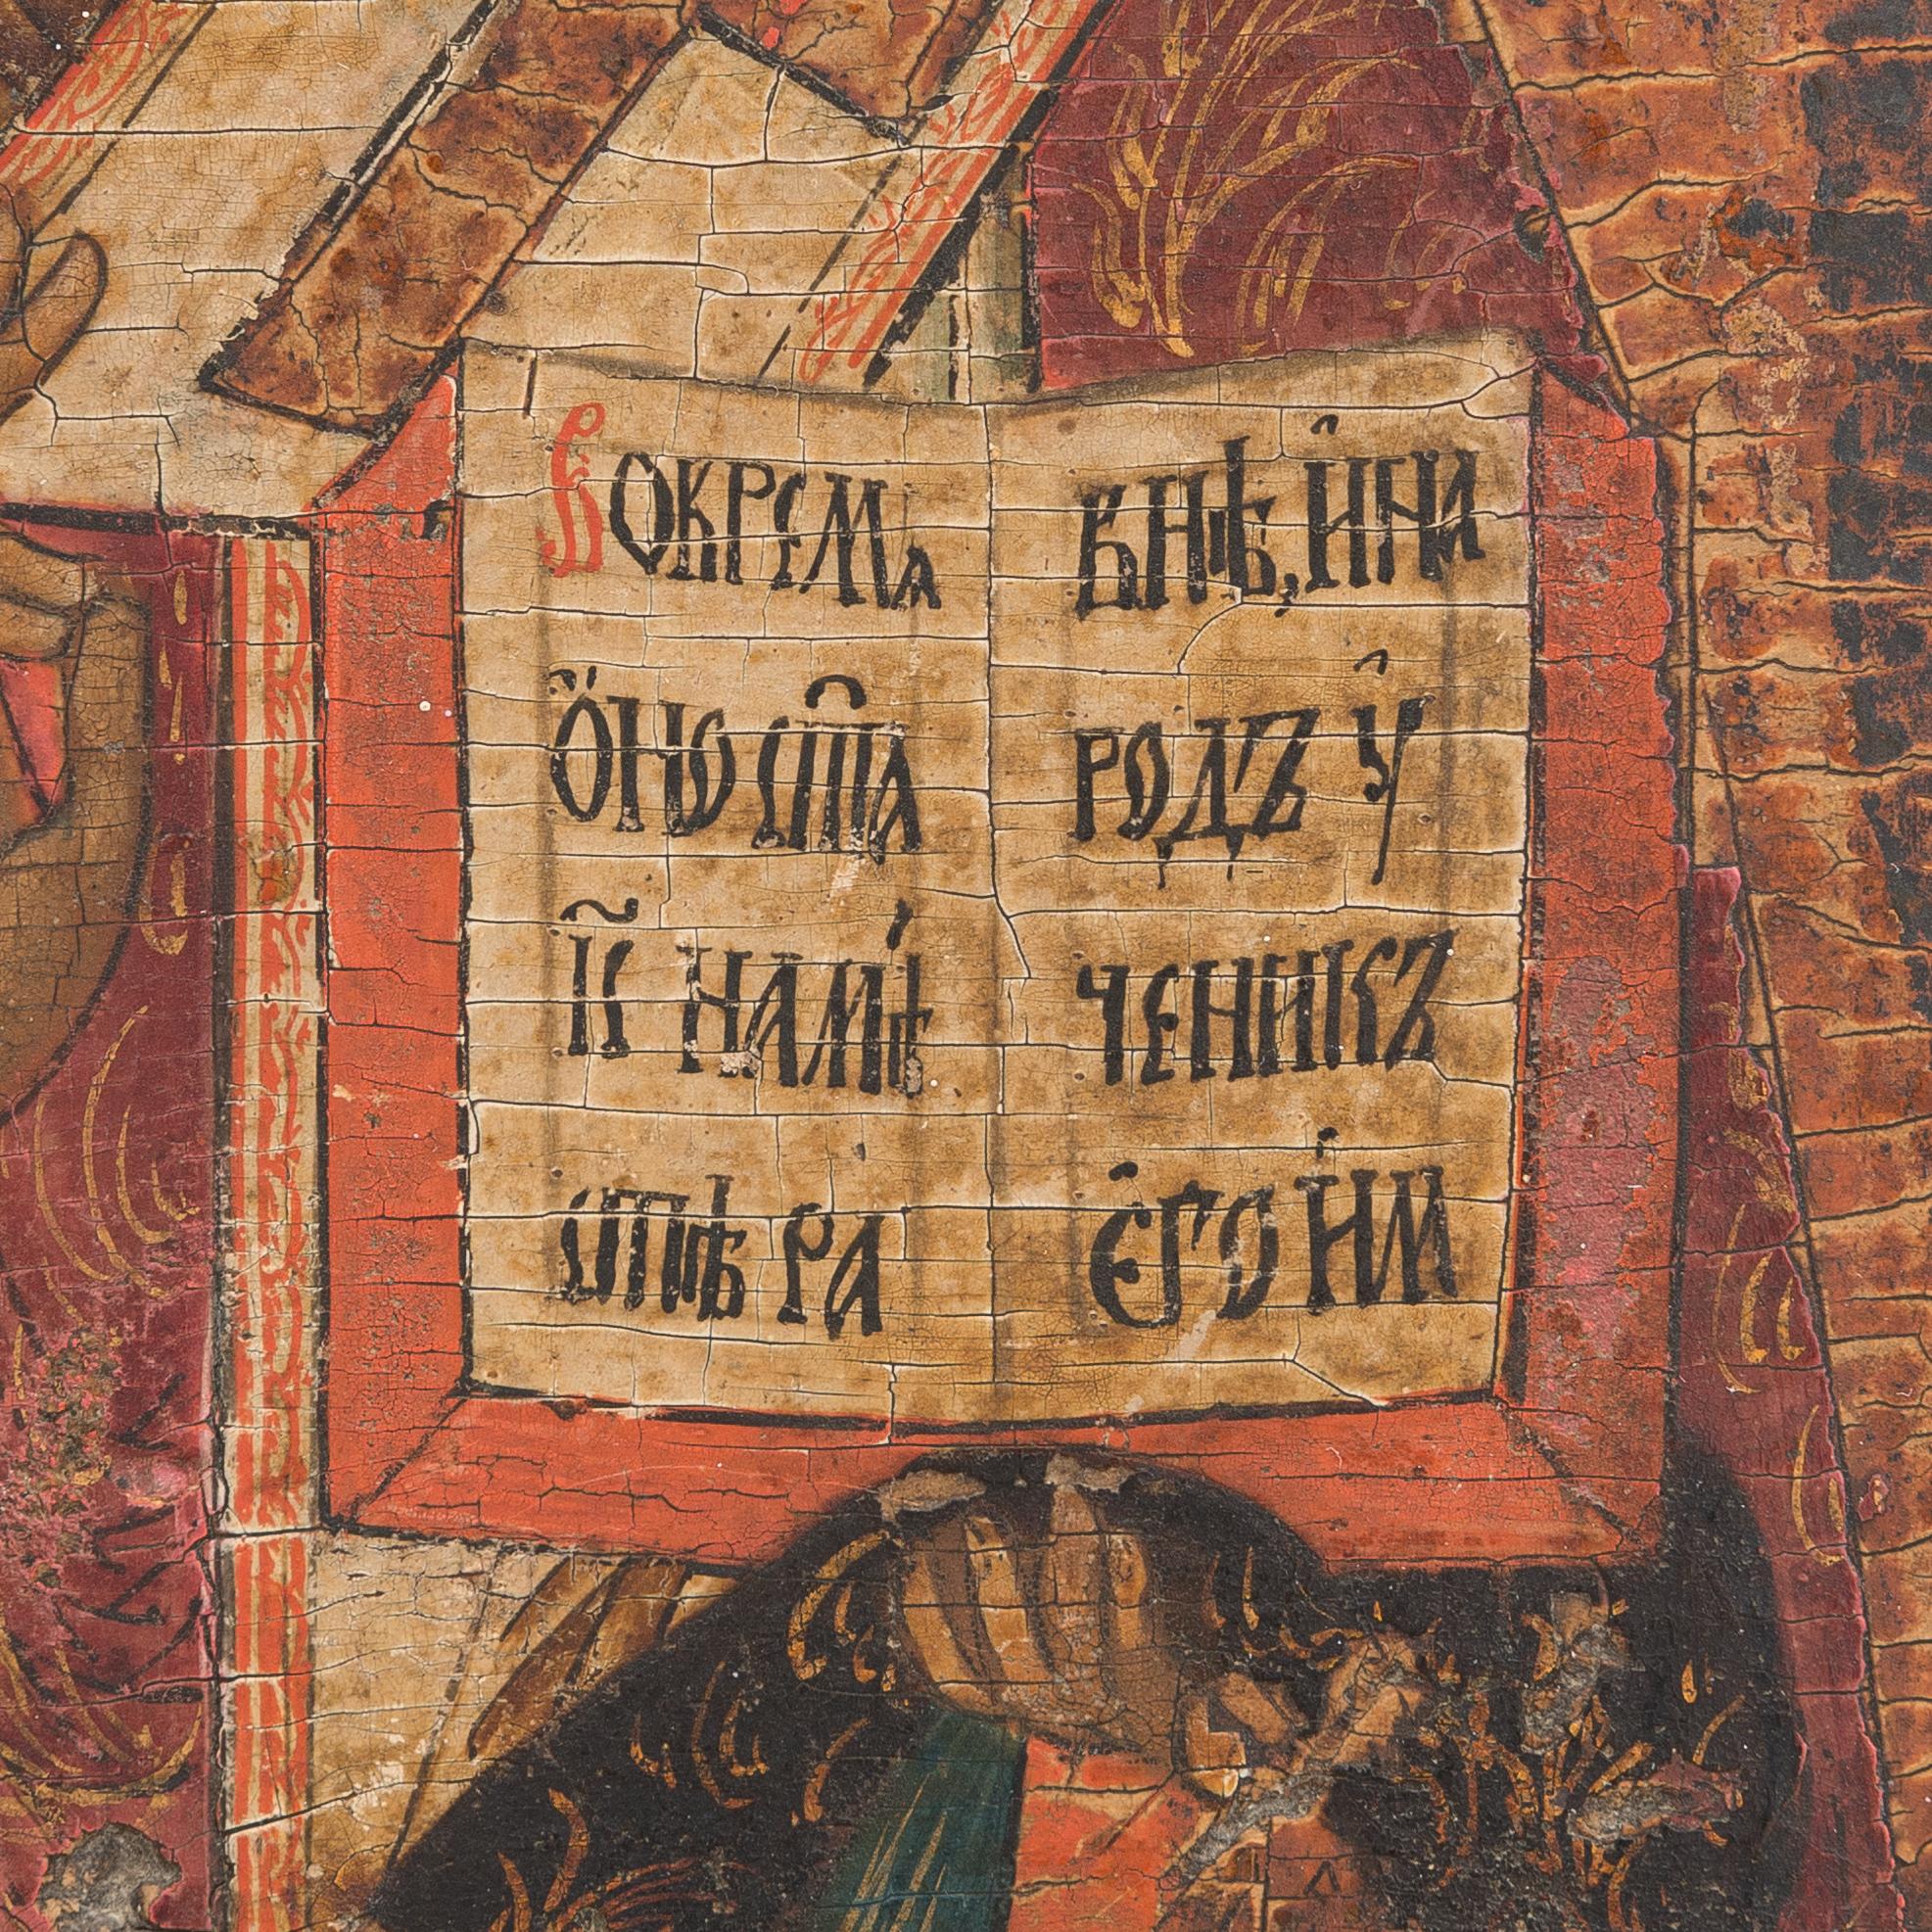 Вовремѧ
ѻно ста
і҃с намѣ
стѣ ра
внѣ, ина
родъ у
ченикъ
єгѡ им